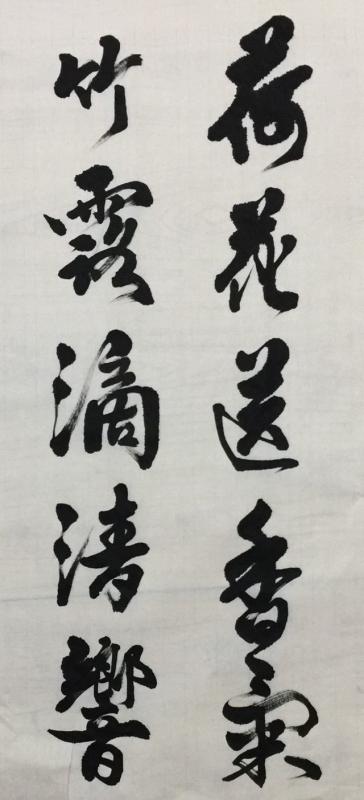 荷花送香氣
竹露滴清響